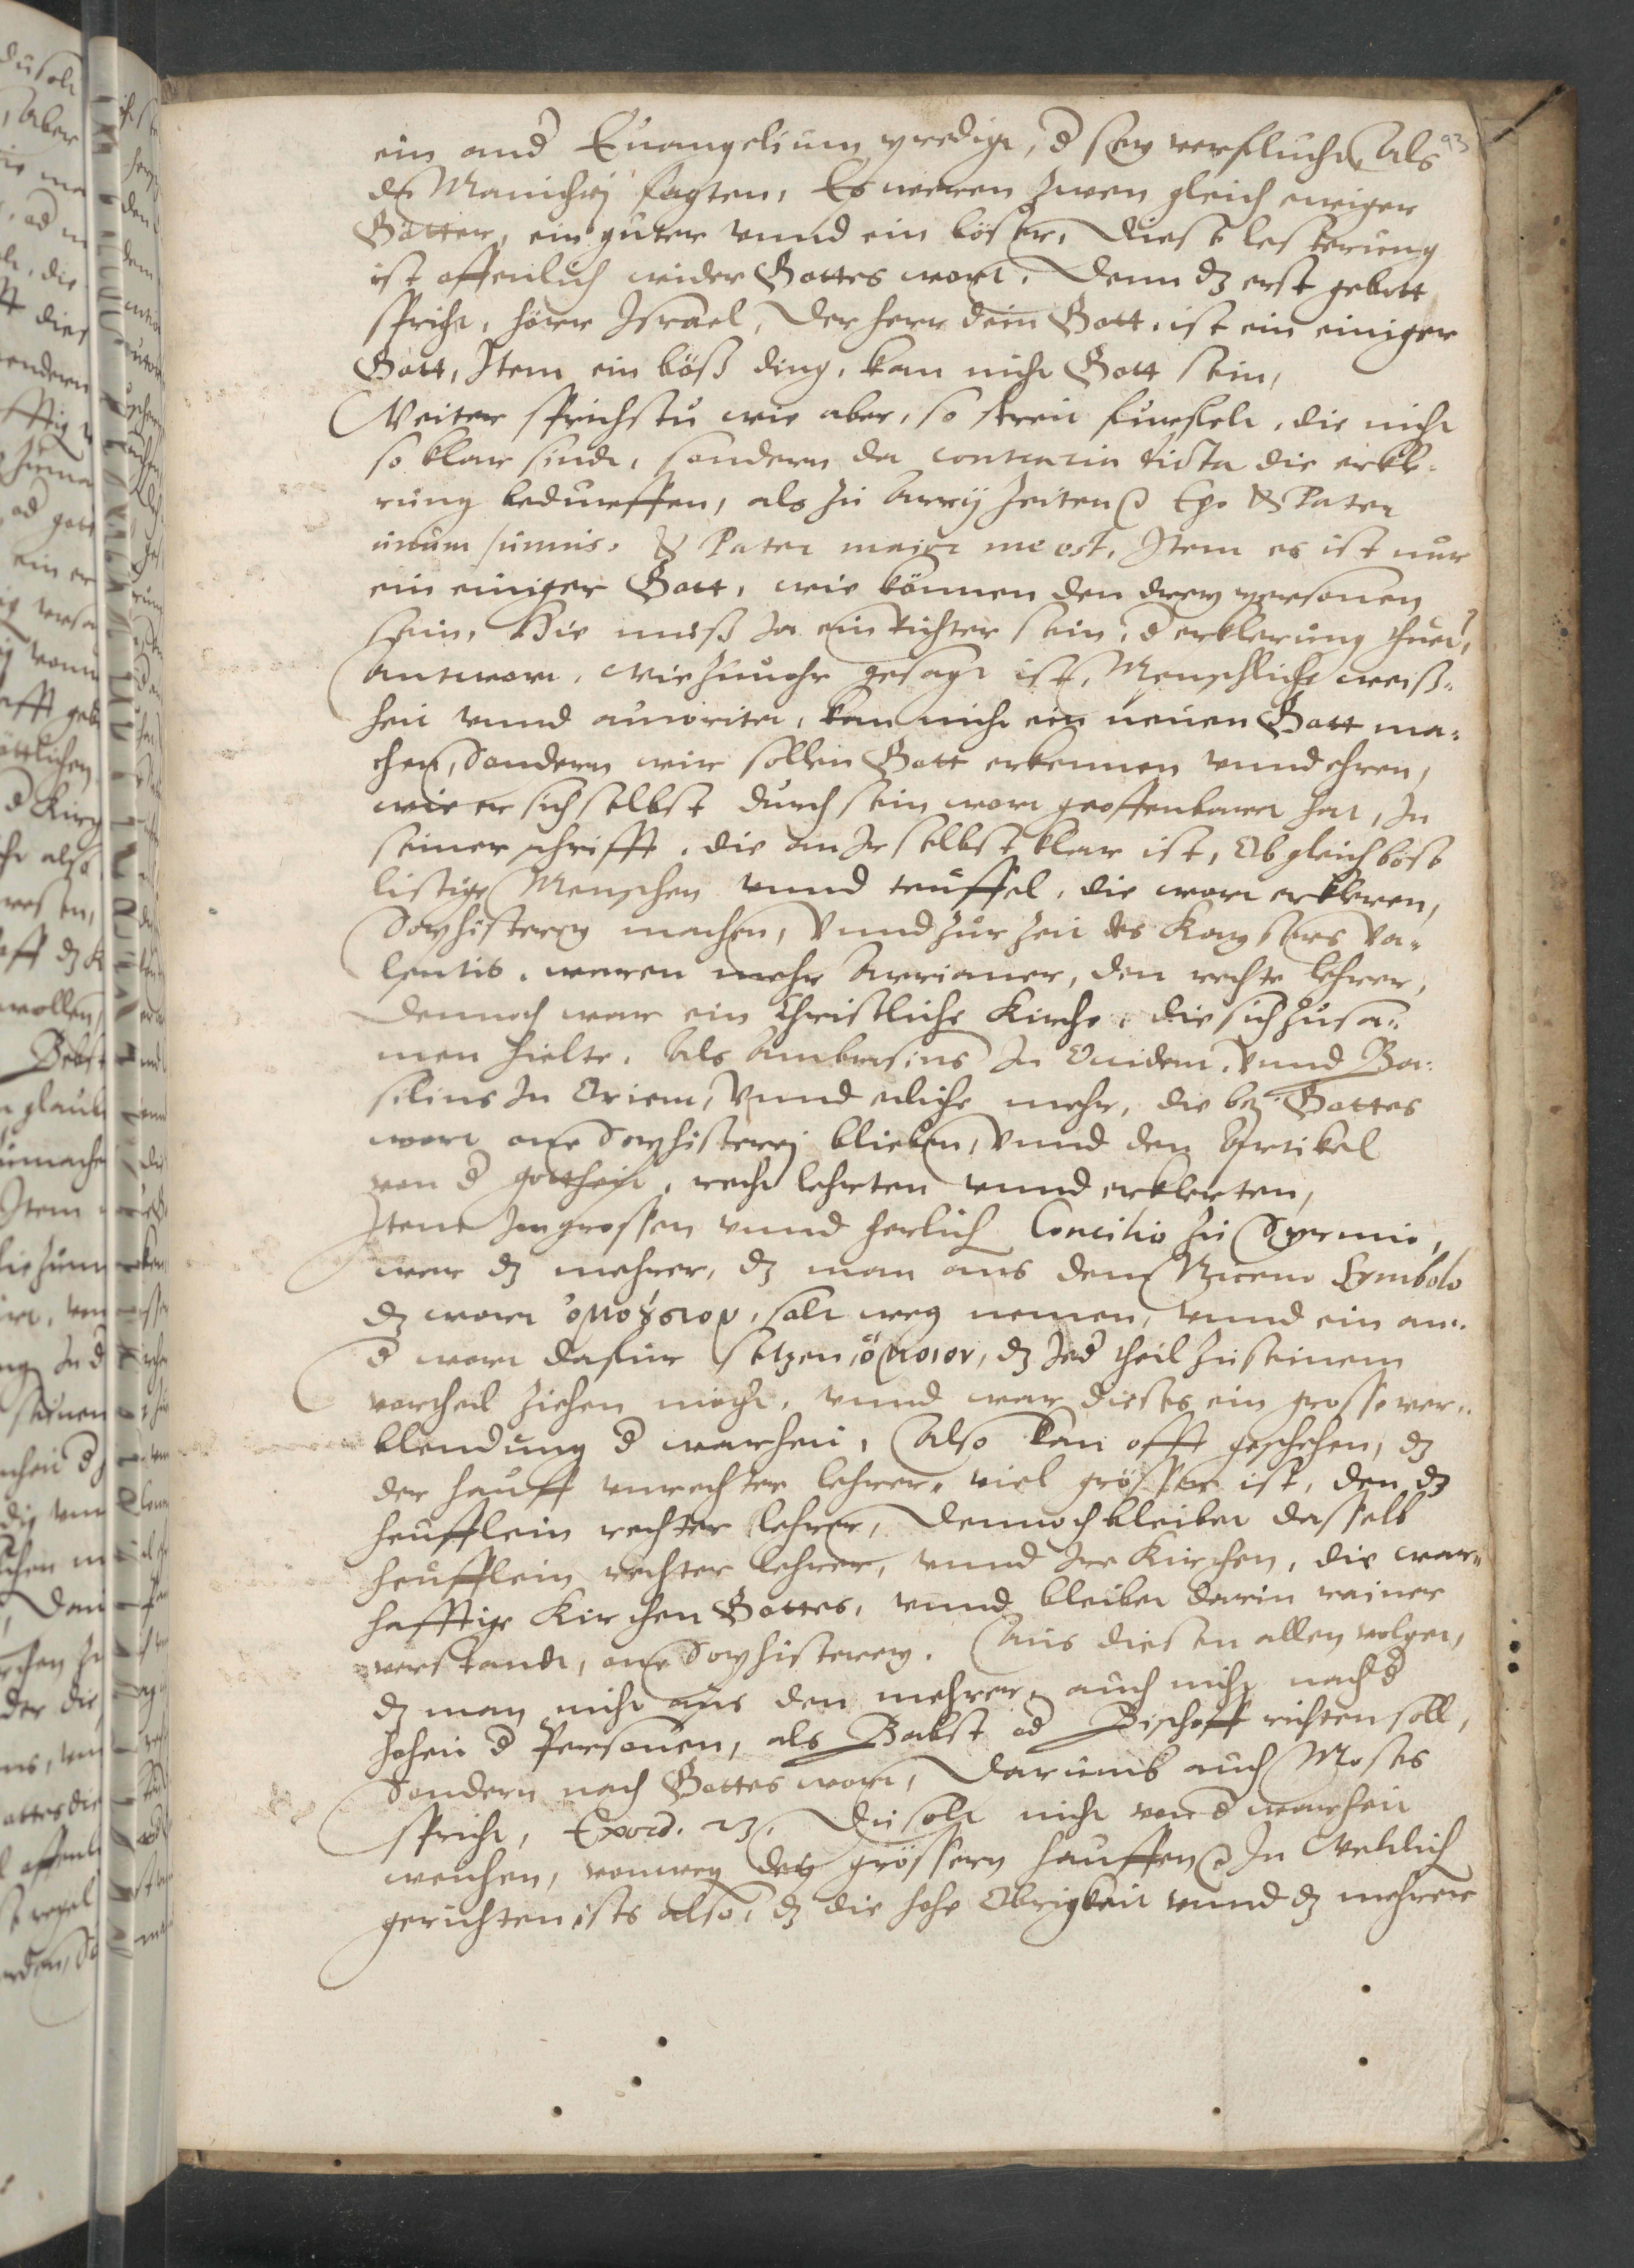 93
ein and Euangelium predigt, d sey verflucht, Als
die Manichej sagten, Es weren zwen gleich ewiger
Götter, ein guter vnnd ein böser, Diese lesterung
ist offenlich wider Gottes wort, Denn dz erst gebott
spricht, höre Israel, Der herr dein Gott, ist ein einiger
Gott, Item ein böß ding, kan nicht Gott sein,
Weiter sprichstu wie aber, so streit furfelt, die nicht
so klar sindt, sondern da contraria dicta die erkle-
rung bedurffen, als zu Arrij zeiten Ego & Pater
unum sumus. & Pater maior me est, Item es ist nur
ein einiger Gott, wie können den drey personen
sein, Hie muß Ja ein richter sein, d erklerung thuet,
Antwort, wie zuuohr gesagt ist, Menschliche weiß-
heit vnnd autoritet, kan nicht ein neuen Gott ma-
chen, Sondern wir sollen Gott erkennen vnnd ehren,
wie er sich selbst durch sein wort geoffenbaret hat, In
seiner schrifft, die an Ir selbst klar ist, Ob gleich böse
listige Menschen vnnd teuffel, die wort erkleren,
Sophisterey machen, Vnnd zur zeit des Kaysers Va-
lentis, waren mehr Arrianer, den rechte lehrer,
Dennoch war ein Christliche Kirche, die sich zusa-
men hielte, Als Ambrosius In Occident, Vnnd Ba-
silius In Orient, Vnnd etliche mehr, die bey Gottes
wort one Sophisterej blieben, Vnnd den Artikel
von d gottheit, recht lehrten vnnd erklerten,
Item Im grossen vnnd herlich Concilio zu Syrmio,
war dz mehrer, dz man aus dem Niceno Symbolo
dz wort ὁμοούσιον, solt weg nemen, vnnd ein an-
d wort dafur setzen, ὅμοιον, dz Jed theil zu seinem
vorthel ziehen möcht, vnnd war dieses ein grosse ver-
blendung d warheit, Also kan offt geschehen, dz
der hauff vnrechter lehrer, viel grösser ist, den dz
heufflein rechter lehrer, Dennoch bleibet dasselb
heufflein rechter lehrer, vnnd Ire Kirchen, die war-
hafftige Kirchen Gottes, vnnd bleibet darin rainer
verstandt, one Sophisterey. Aus diesem allen volget,
dz man nicht aus den mehrer, auch nicht nach d
hoheit d Personen, als Babst od Bischoff richten soll,
Sondern nach Gottes wort, Darumb auch Moses
spricht, Exod. 23. Du solt nicht von d warheit
weichen, vonweg des grössern hauffen In Weltlich
gerichten ists also, dz die hohe Obrigkeit vnnd dz mehrer